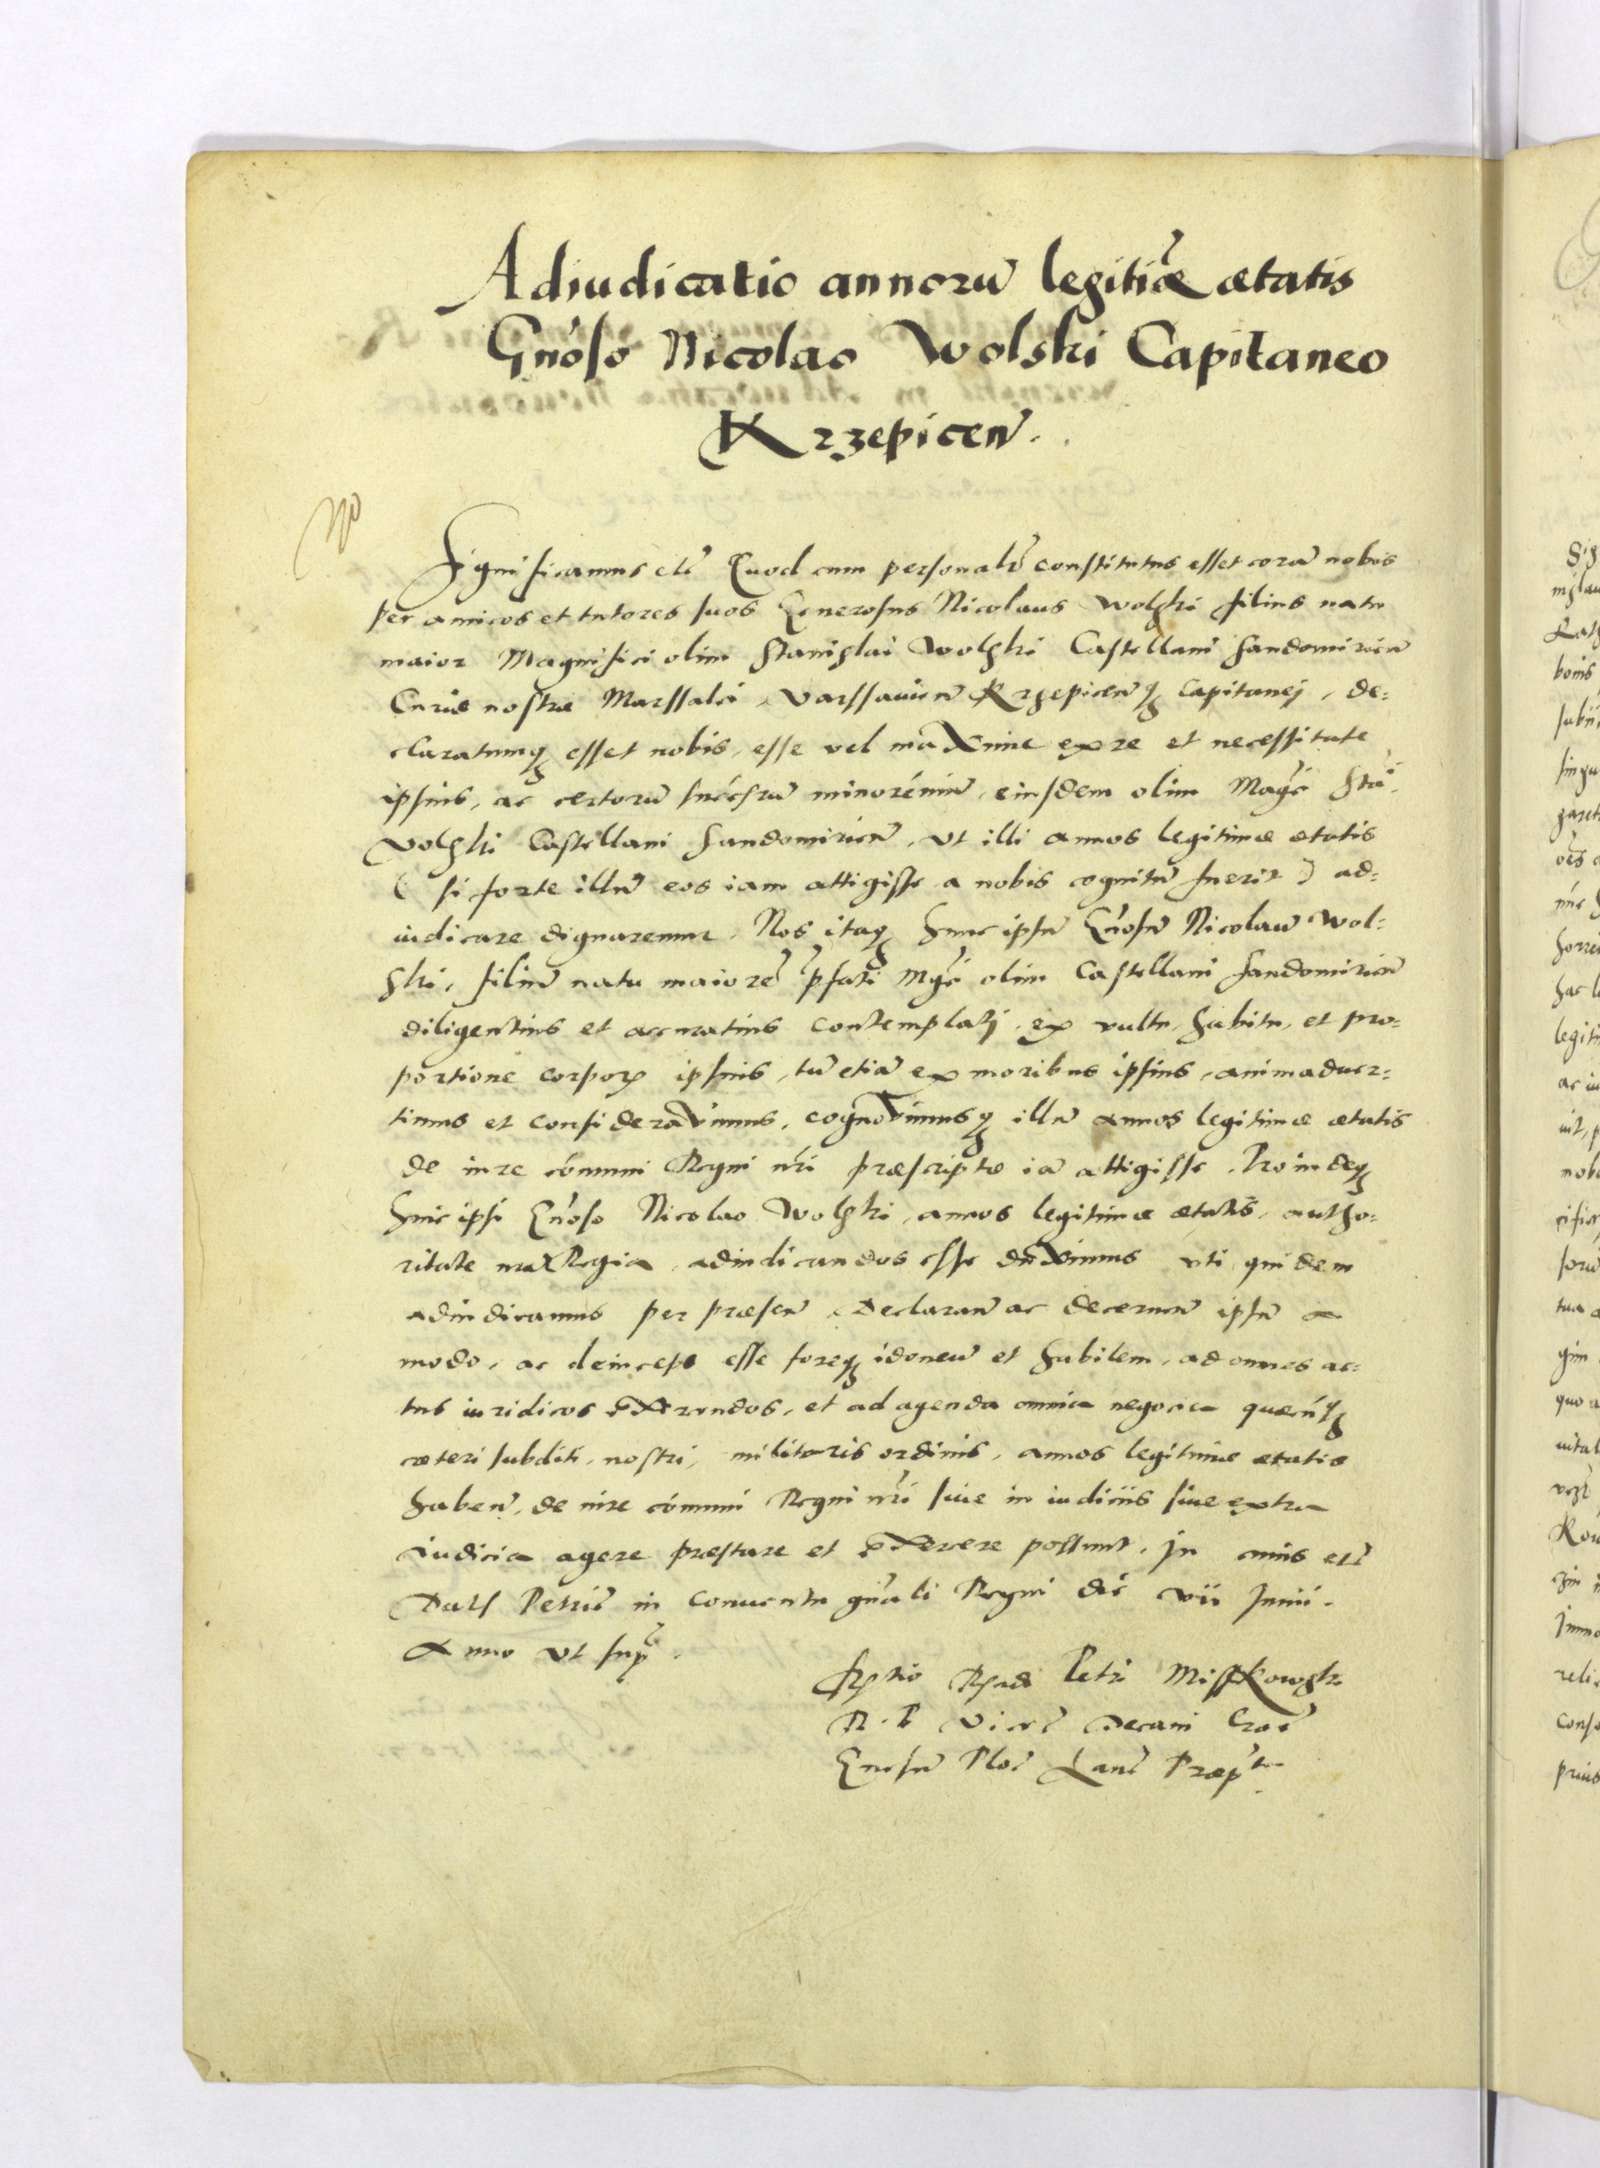 Adiudicatio annorū legitīe ætatis
Gnoso Nicolao Wolski Capitaneo
Krzepicen̄.
Significamus etc̄ Quod cum personalr̄ constitutus esset corā nobis
per amicos et tutores suos Generosus Nicolaus Wolski filius natu
maior Magnifici olim Stanislai Wolski Castellani Sandomirien̄
Curiæ nostræ Marssalci, Varssavien̄ Krzepicen̄q₃ Capitanej, de:
claratumq₃ esset nobis, esse vel maxime ex re et necessitate
ipsius, ac certorū succesrū minorēnium, eiusdem olim Magci Sta:
Volski Castellani Sandomirien̄, Vt illi annos legitimæ ætatis
( si forte illū eos iam attigisse a nobis cognitū fuerit ) ad:
iudicare dignaremur. Nos itaq₃ hunc ipsū Gnosū Nicolaū Wol:
ski, filiū natu maiorē p̄fati Mgci olim Castellani Sandomirien̄
diligentius et accuratius contemplatj, ex vultu, habitu, et pro:
portione corporȩ ipsius, tū etiā ex moribus ipsius, animaduer:
timus et consideravimus, cognovimusq₃ illū annos legitimæ ætatis
de iure cōmuni Regni nr̄i præscriptæ iā attigisse. Proindeq₃
huic ipsi Gnoso Nicolao Wolski, annos legitimæ ætatis, autho:
ritate nrā Regia, adiudicandos esse duximus uti quidem
adiudicamus per præsen̄, Declaran̄ ac decernen̄ ipsū a
modo, ac deinceps esse foreq₃ idoneū et habilem, ad omnes ac:
tus iuridicos exercendos, et ad agenda omnia negocia quæcūq₃
cæteri subditi nostri, militaris ordinis, annos legitimæ ætatis
haben̄, de iure cōmuni Regni nr̄i siue in iudiciis siue extra
iudicia agere præstare et exercere possunt. In cuius etc̄
Dat Petric̄ in Conuentu gn̄ali Regni die vii Junii.
Anno Vt sup̄.
Rᵉtio Rᵉndi Petri Misskowski
R. P. Vicec̄ Decani Crac̄
Gnesn̄ Ploc̄ Lanc̄ Præpti